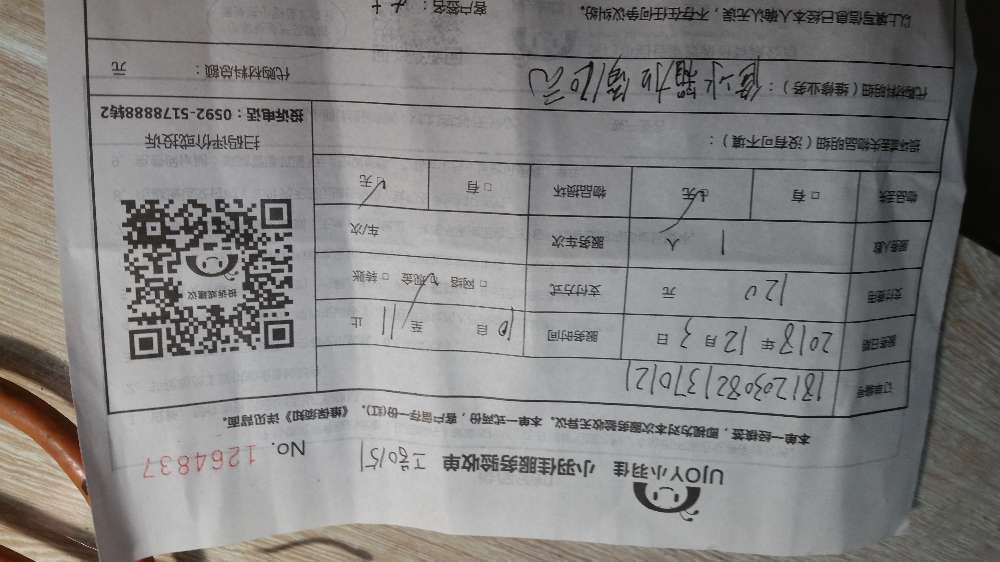 UJOY小羽佳 小羽佳服务验收单 No. 1264837
本单一经核签，即视为对本次服务验收无异议。本单一式两份，客户留存一份(红)，《维保须知》详见背面。
订单编号 181203082137012
服务日期 2018年12月3日 服务时间 10自 至11止
支付费用 120元 支付方式 □网络 现金 □转账
服务人数 1人 服务车次 车/次
物品丢失 □有 无 物品损坏 □有 无
损坏或丢失物品明细（没有可不填）：
投诉或建议
扫码评价或投诉
投诉电话：0592-5178888转2
代购材料明细（维修业务）： 元） 代购材料总额： 元
以上填写信息已经本人确认无误，不存在任何争议纠纷。 客户签名：